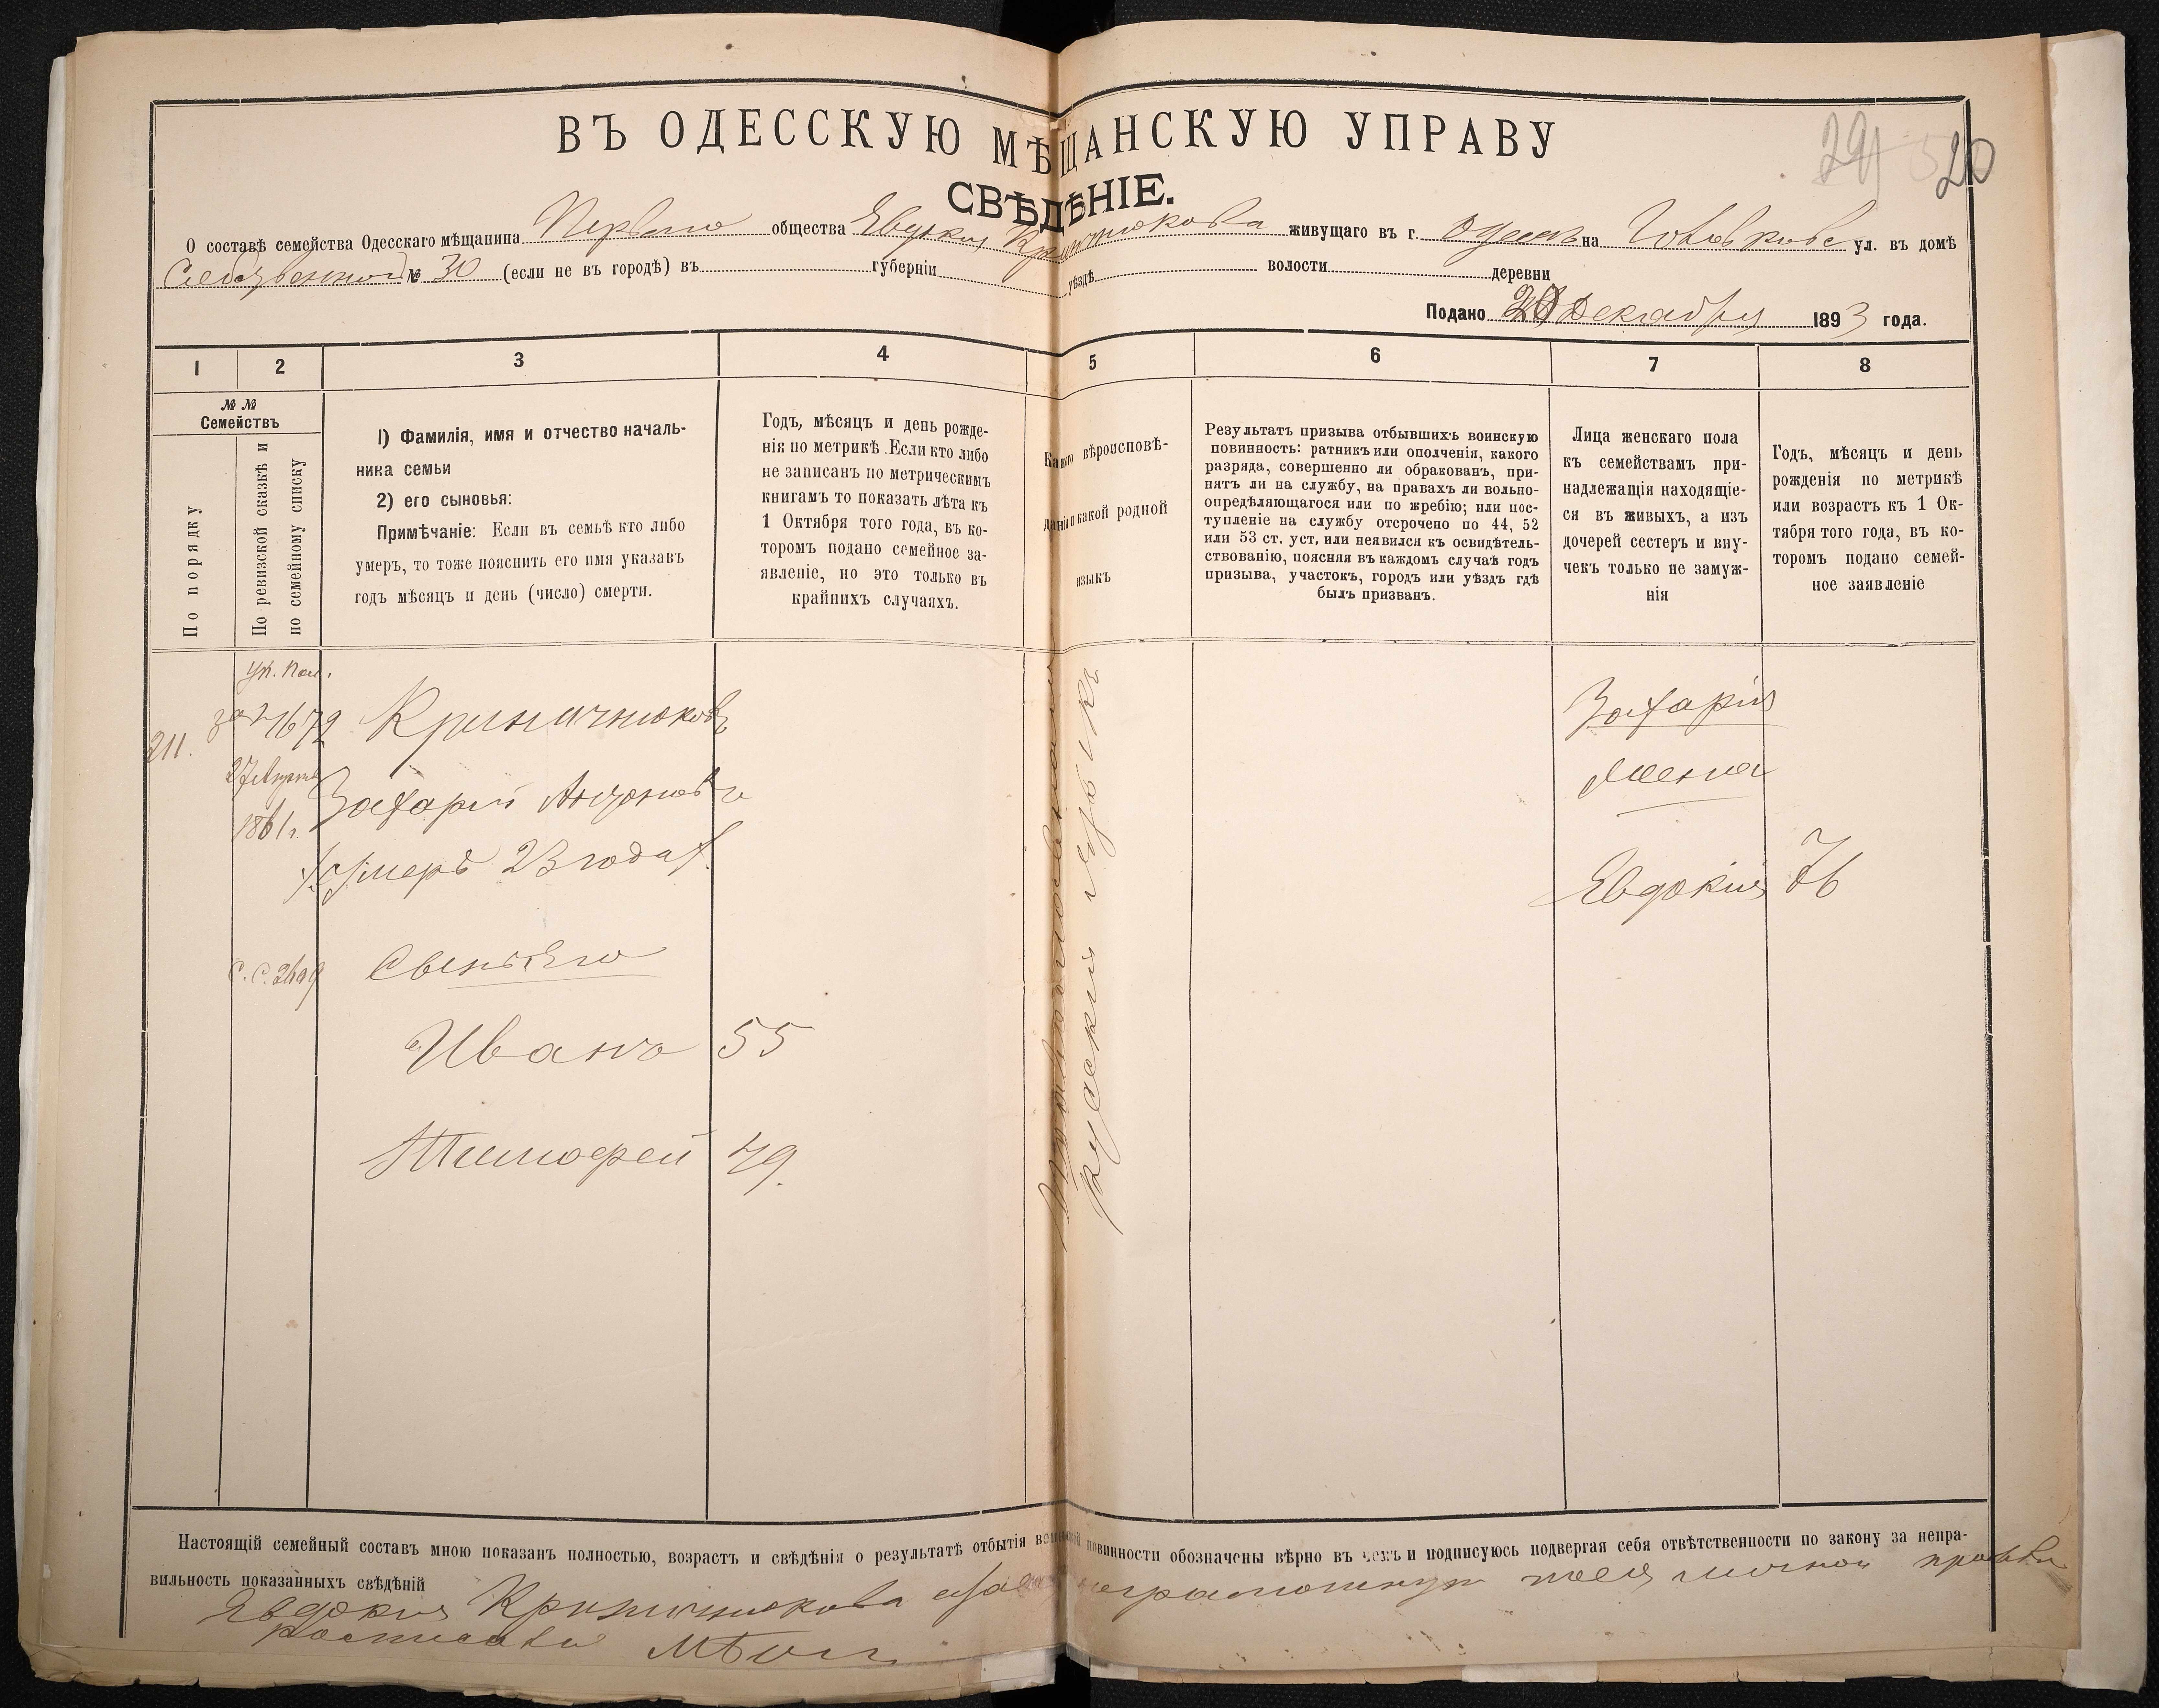 ВЪ ОДЕССКУЮ МѢЩАНСКУЮ УПРАВУ
20
СВѢДѢНІЕ.
О составѣ семейства Одесскаго мѣщанина Перваго общества Евдокия Криничнюкова живущаго въ г. Одессѣ на ул. въ домѣ
№ 30 (если не въ городѣ) въ губерніи уѣздѣ волости деревни
Подано 20 Декабря 1893 года.
1 2 3 4 5 6 7 8
№ № Семействъ
По порядку
По ревизской сказкѣ и
по семейному списку
1) Фамилія, имя и отчество началь-
ника семьи
2) его сыновья:
Примѣчаніе: Если въ семьѣ кто либо
умеръ, то тоже пояснить его имя указавъ
годъ мѣсяцъ и день (число) смерти.
Годъ, мѣсяцъ и день рожде-
нія по метрикѣ. Если кто либо
не записанъ по метрическимъ
книгамъ то показать лѣта къ
1 Октября того года, въ ко-
торомъ подано семейное за-
явленіе, но это только въ
крайнихъ случаяхъ.
Какого вѣроисповѣ-
данія и какой родной
языкъ
Результатъ призыва отбывшихъ воинскую
повинность: ратникъ или ополченія, какого
разряда, совершенно ли обракованъ, при-
нятъ ли на службу, на правахъ ли вольно-
опредѣляющагося или по жребію; или пос-
тупленіе на службу отсрочено по 44, 52
или 53 ст. уст, или неявился къ освидѣтель-
ствованію, поясняя въ каждомъ случаѣ годъ
призыва, участокъ, городъ или уѣздъ гдѣ
былъ призванъ.
Лица женскаго пола
къ семействамъ при-
надлежащія находящіе-
ся въ живыхъ, а изъ
дочерей сестеръ и вну-
чекъ только не замуж-
нія
Годъ, мѣсяцъ и день
рожденія по метрикѣ
или возрастъ къ 1 Ок-
тября того года, въ ко-
торомъ подано семей-
ное заявленіе
211.
Ук. Пал.
за № 1679
27 Апрѣля
1861 г.
Криничнюковъ
Захарій Антоновъ
умеръ 23 года
С.С. 2649
Сынъ Его
Иванъ 55
Тимофей 49.
Православнаго
Русскій языкъ
Захарія
Жена
Евдокия 76
Настоящій семейный составъ мною показанъ полностью, возрастъ и свѣдѣнія о результатѣ отбытія воинской повинности обозначены вѣрно въ чемъ и подписуюсь подвергая себя отвѣтственности по закону за непра-
вильность показанныхъ свѣдѣній
Евдокия Криничнюкова а за неграмотную по ея личной просьбѣ
росписался